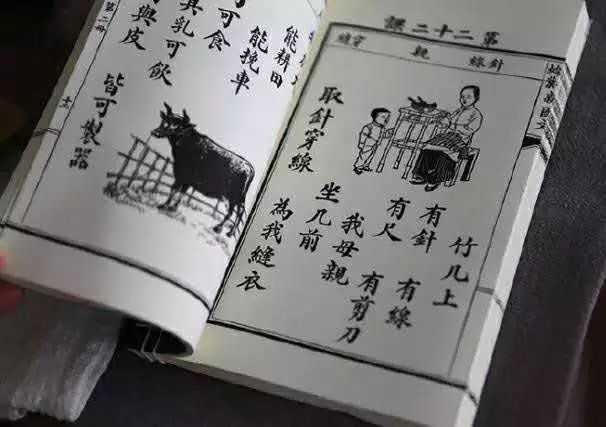 第二十二課
針線 親 穿縫
竹几上
有針 有線
有尺 有剪刀
我母親
坐几前
取針穿線
為我縫衣
能耕田
能挽車
可食
其乳可飲
與皮
皆可製器
第二冊